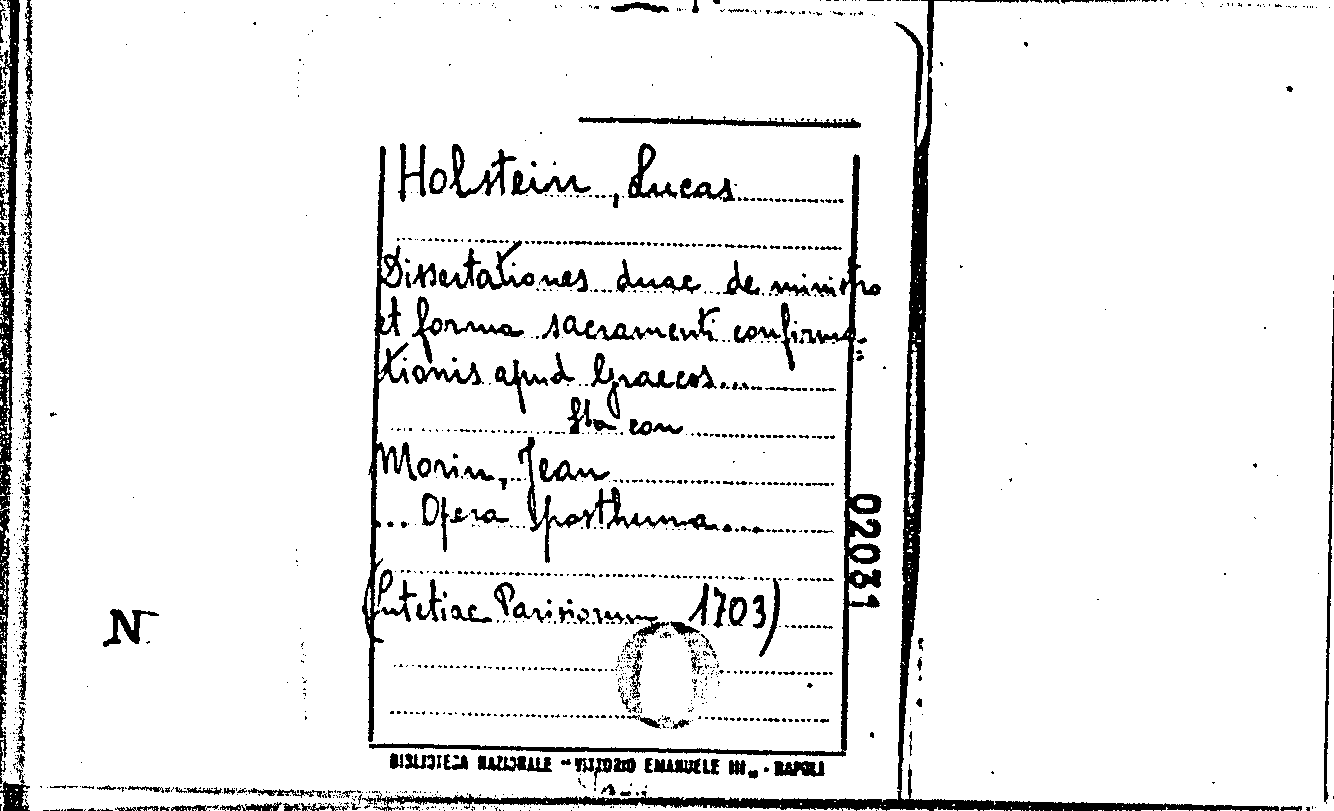 Holstein, Lucas
Dissertationes duae de ministro
et forma sacramenti confirma=
tionis apud Graecos...
Sta con
Morin, Jean
... Opera posthuma....
(Lutetiae Parisiorum 1703)
02031
N
BIBLIOTECA NAZIONALE "VITTORIO EMANUELE III„ - NAPOLI